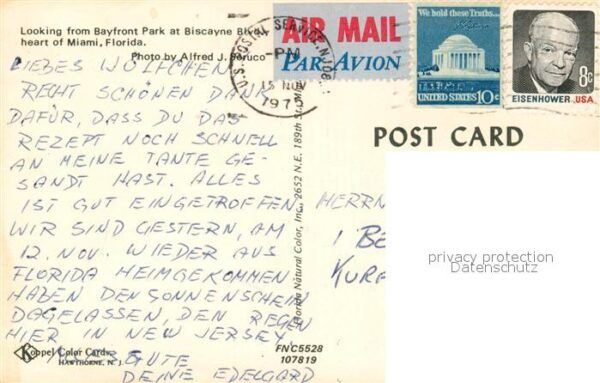 Looking from Bayfront Park at Biscayne Blvd.
heart of Miami, Florida.
Photo by Alfred J. Baruco
LIEBES WÖLFCHEN
RECHT SCHÖNEN DANK
DAFÜR, DASS DU DAS
REZEPT NOCH SCHNELL
AN MEINE TANTE GE-
SANDT HAST. ALLES
IST GUT EINGETROFFEN.
WIR SIND GESTERN, AM
12. NOV. WIEDER AUS
FLORIDA HEIMGEKOMMEN
HABEN DEN SONNENSCHEIN
DAGELASSEN, DEN REGEN
HIER IN NEW JERSEY.
ALLES GUTE
DEINE EDELGARD
Koppel Color Cards
HAWTHORNE, N. J.
FNC5528
107819
Florida Natural Color, Inc., 2652 N.E. 189th St.
U.S. POSTAL SERVICE, N.J.
PM
15 NOV
197
AIR MAIL
PAR AVION
We hold these Truths...
UNITED STATES 10c
8c
EISENHOWER USA
POST CARD
HERRN
1 BE
KURF
privacy protection
Datenschutz